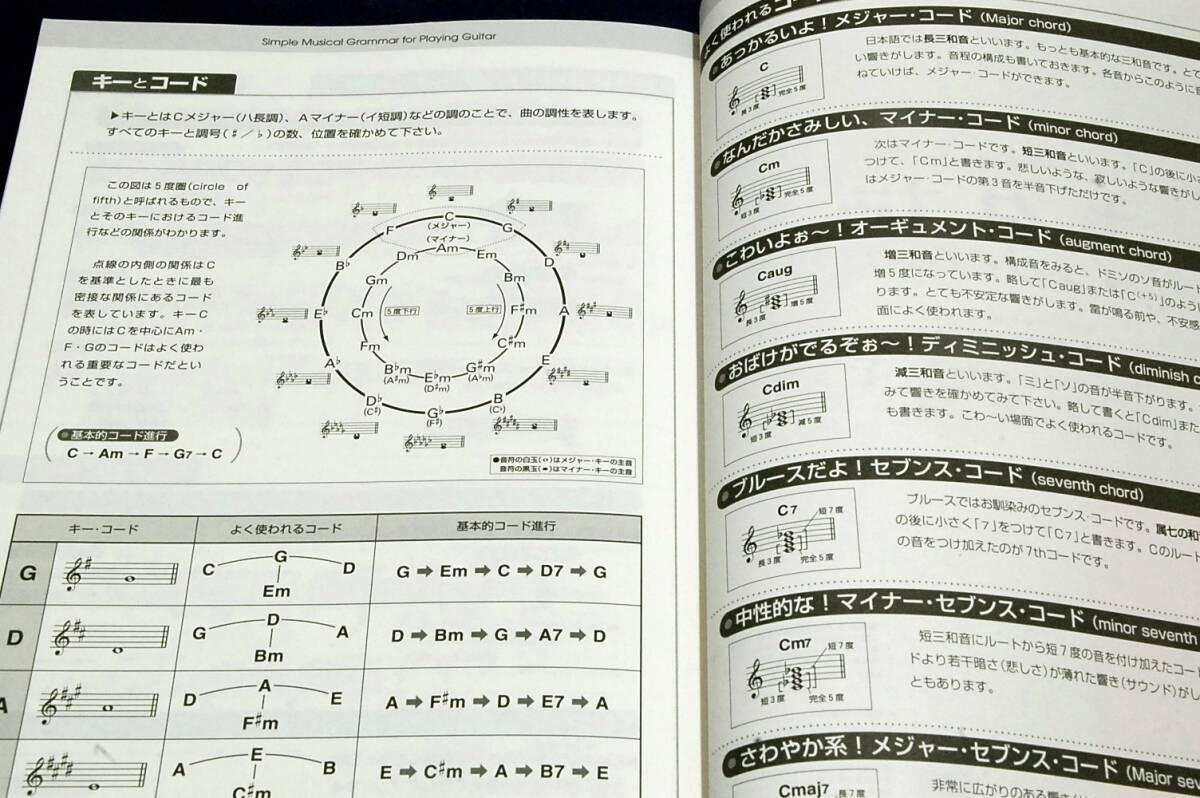 Simple Musical Grammar for Playing Guitar
キーとコード
▶キーとはCメジャー(ハ長調)、Aマイナー(イ短調)などの調のことで、曲の調性を表します。
すべてのキーと調号(♯／♭)の数、位置を確かめて下さい。
この図は5度圏(circle of
fifth)と呼ばれるもので、キー
とそのキーにおけるコード進
行などの関係がわかります。
点線の内側の関係はC
を基準としたときに最も
密接な関係にあるコード
を表しています。キーC
の時にはCを中心にAm・
F・Gのコードはよく使わ
れる重要なコードだとい
うことです。
●基本的コード進行
C→Am→F→G7→C
C
(メジャー)
G
D
A
E
B
(C♭)
G♭
(F♯)
D♭
(C♯)
A♭
E♭
B♭
F
(マイナー)
Am
Em
Bm
F♯m
C♯m
G♯m
(A♭m)
E♭m
(D♯m)
B♭m
(A♯m)
Fm
Cm
Gm
Dm
5度下行
5度上行
●音符の白玉(𝅝)はメジャー・キーの主音
音符の黒玉(●)はマイナー・キーの主音
キー・コード よく使われるコード 基本的コード進行
G
C G D
Em
G ➡ Em ➡ C ➡ D7 ➡ G
D
G D A
Bm
D ➡ Bm ➡ G ➡ A7 ➡ D
A
D A E
F♯m
A ➡ F♯m ➡ D ➡ E7 ➡ A
A E B
C♯m
E ➡ C♯m ➡ A ➡ B7 ➡ E
よく使われるコード
●あっかるいよ！メジャー・コード (Major chord)
C
長3度 完全5度
日本語では長三和音といいます。もっとも基本的な三和音です。とて
い響きがします。音程の構成も書いておきます。各音からこのように音
ねていけば、メジャー・コードができます。
●なんだかさみしい、マイナー・コード (minor chord)
Cm
短3度 完全5度
次はマイナー・コードです。短三和音といいます。「C」の後に小さ
つけて、「Cm」と書きます。悲しいような、寂しいような響きがし
はメジャー・コードの第3音を半音下げただけです。
●こわいよぉ〜！オーギュメント・コード (augment chord)
Caug
長3度 増5度
増三和音といいます。構成音をみると、ドミソのソ音がルート
増5度になっています。略して「Caug」または「C(+5)」のよう
ります。とても不安定な響きがします。雷が鳴る前や、不安感
面によく使われます。
●おばけがでるぞぉ〜！ディミニッシュ・コード (diminish c
Cdim
短3度 減5度
減三和音といいます。「ミ」と「ソ」の音が半音下がります。
みて響きを確かめてみて下さい。略して書くと「Cdim」また
も書きます。こわ〜い場面でよく使われるコードです。
●ブルースだよ！セブンス・コード (seventh chord)
C7
短7度
長3度 完全5度
ブルースではお馴染みのセブンス・コードです。属七の和
の後に小さく「7」をつけて「C7」と書きます。Cのルート
の音をつけ加えたのが7thコードです。
●中性的な！マイナー・セブンス・コード (minor seventh
Cm7
短7度
短3度 完全5度
短三和音にルートから短7度の音を付け加えたコー
ドより若干暗さ(悲しさ)が薄れた響き(サウンド)がし
ともあります。
●さわやか系！メジャー・セブンス・コード (Major sev
Cmaj7
長7度
非常に広がりのある響き